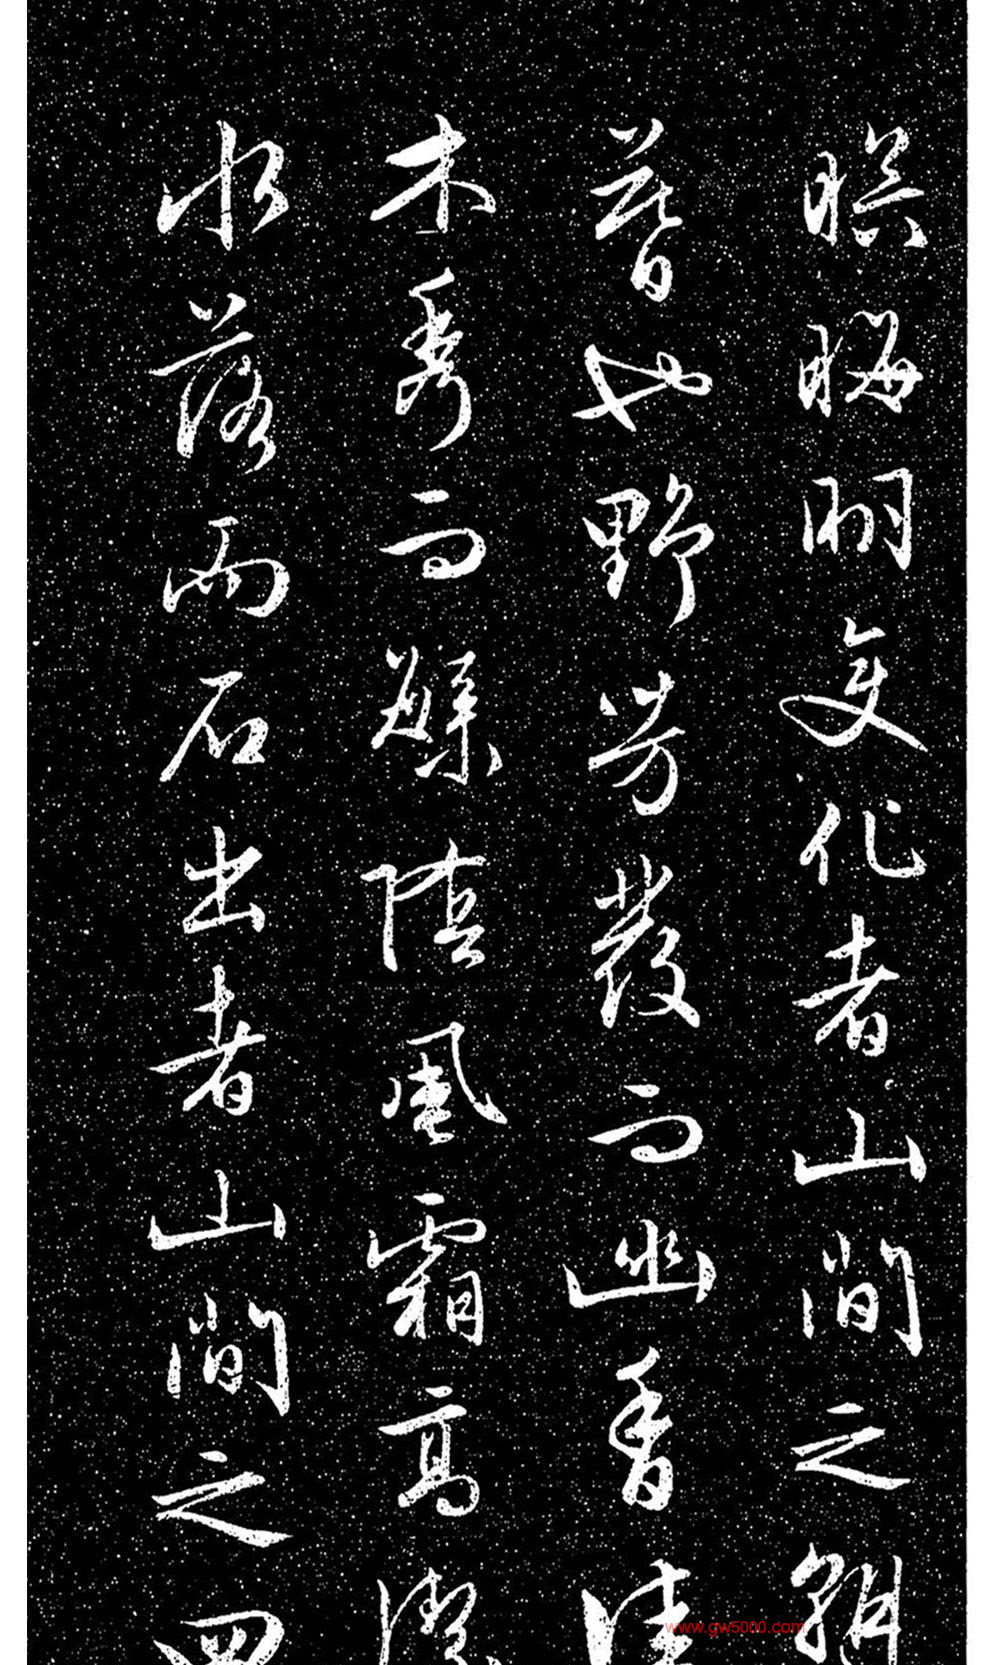 暝晦明變化者山間之朝
暮也野芳發而幽香佳
木秀而繁陰風霜高潔
水落而石出者山間之四
www.gw5000.com